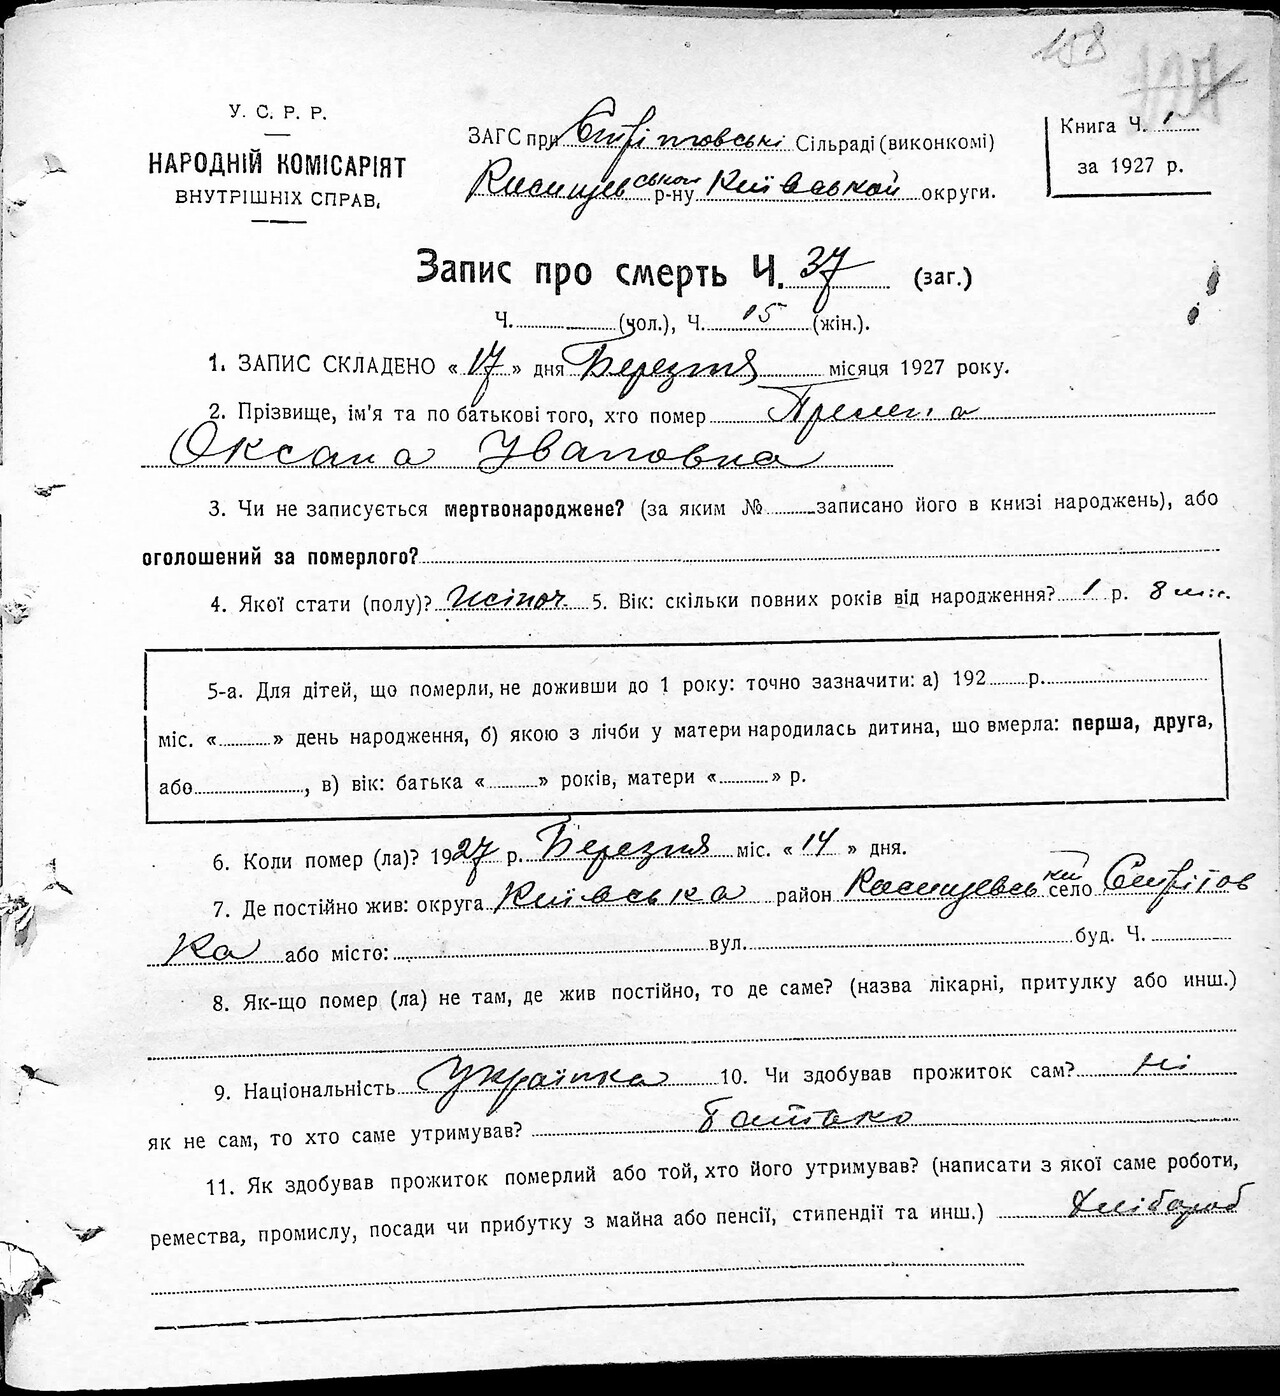 158
127
У. С. Р. Р.
НАРОДНІЙ КОМІСАРІЯТ
ВНУТРІШНІХ СПРАВ,
ЗАГС при Єлізарівські Сільраді (виконкомі)
ського р-ну Київської округи.
Книга Ч. 1
за 1927 р.
Запис про смерть Ч. 37 (заг.)
Ч. (чол.), Ч. 15 (жін.).
1. ЗАПИС СКЛАДЕНО « 17 » дня Березня місяця 1927 року.
2. Прізвище, ім'я та по батькові того, хто помер
Оксана Ивановна
3. Чи не записується мертвонароджене? (за яким № записано його в книзі народжень), або
оголошений за померлого?
4. Якої стати (полу)? жіноч. 5. Вік: скільки повних років від народження? 1 р. 8 міс.
5-а. Для дітей, що померли, не доживши до 1 року: точно зазначити: а) 192 р.
міс. « » день народження, б) якою з лічби у матери народилась дитина, що вмерла: перша, друга,
або , в) вік: батька « » років, матери « » р.
6. Коли помер (ла)? 1927 р. Березня міс. « 14 » дня.
7. Де постійно жив: округа Київська район село
ка або місто: вул. буд. Ч.
8. Як-що помер (ла) не там, де жив постійно, то де саме? (назва лікарні, притулку або инш.)
9. Національність Українка 10. Чи здобував прожиток сам? ні
як не сам, то хто саме утримував? Батько
11. Як здобував прожиток померлий або той, хто його утримував? (написати з якої саме роботи,
ремества, промислу, посади чи прибутку з майна або пенсії, стипендії та инш.) хлібороб